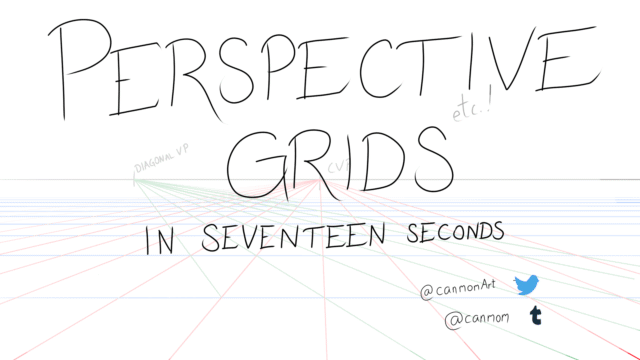 PERSPECTIVE
etc..!
GRIDS
DIAGONAL VP
CVP
IN SEVENTEEN SECONDS
@cannonArt
@canmom